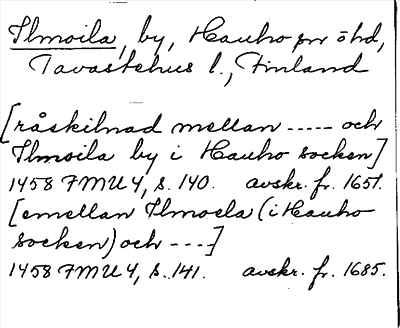 Ilmoila, by, Hauho sn ö hd,
Tavastehus l., Finland
[råskilnad mellan ----- och
Ilmoila by i Hauho socken]
1458 FMU 4, s. 140. avskr. fr. 1651.
[emellan Ilmoela (i Hauho
socken) och ----]
1458 FMU 4, s. 141. avskr. fr. 1685.